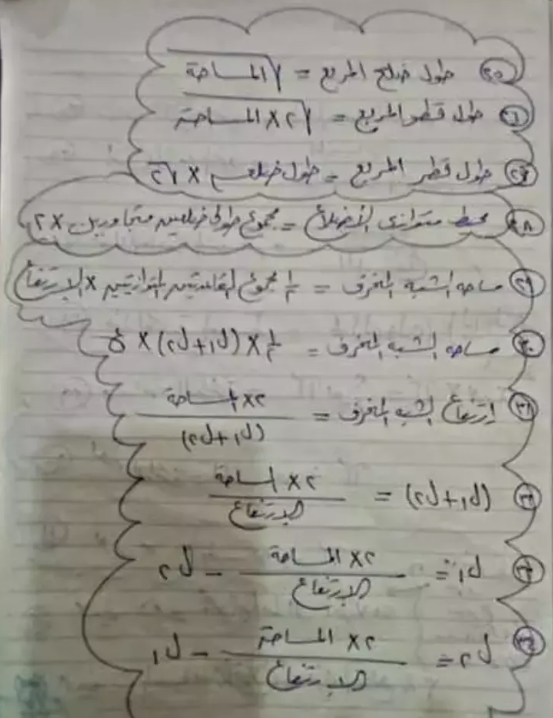 ٢٥ طول ضلع المربع = √المساحة
٢٦ طول قطر المربع = √٢×المساحة
٢٧ طول قطر المربع = طول ضلعه × √٢
٢٨ محيط متوازى الأضلاع = مجموع طولى ضلعين متجاورين × ٢
٢٩ مساحه الشبه المنحرف = ١/٢ مجموع القاعدتين المتوازيتين × الارتفاع
٣٠ مساحه الشبه المنحرف = ١/٢ × (ل١+ل٢) × ع
٣١ ارتفاع الشبه المنحرف = ٢× المساحة / (ل١+ل٢)
٣٢ (ل١+ل٢) = ٢× المساحة / الارتفاع
٣٣ ل١ = ٢× المساحة / الارتفاع - ل٢
٣٤ ل٢ = ٢× المساحة / الارتفاع - ل١